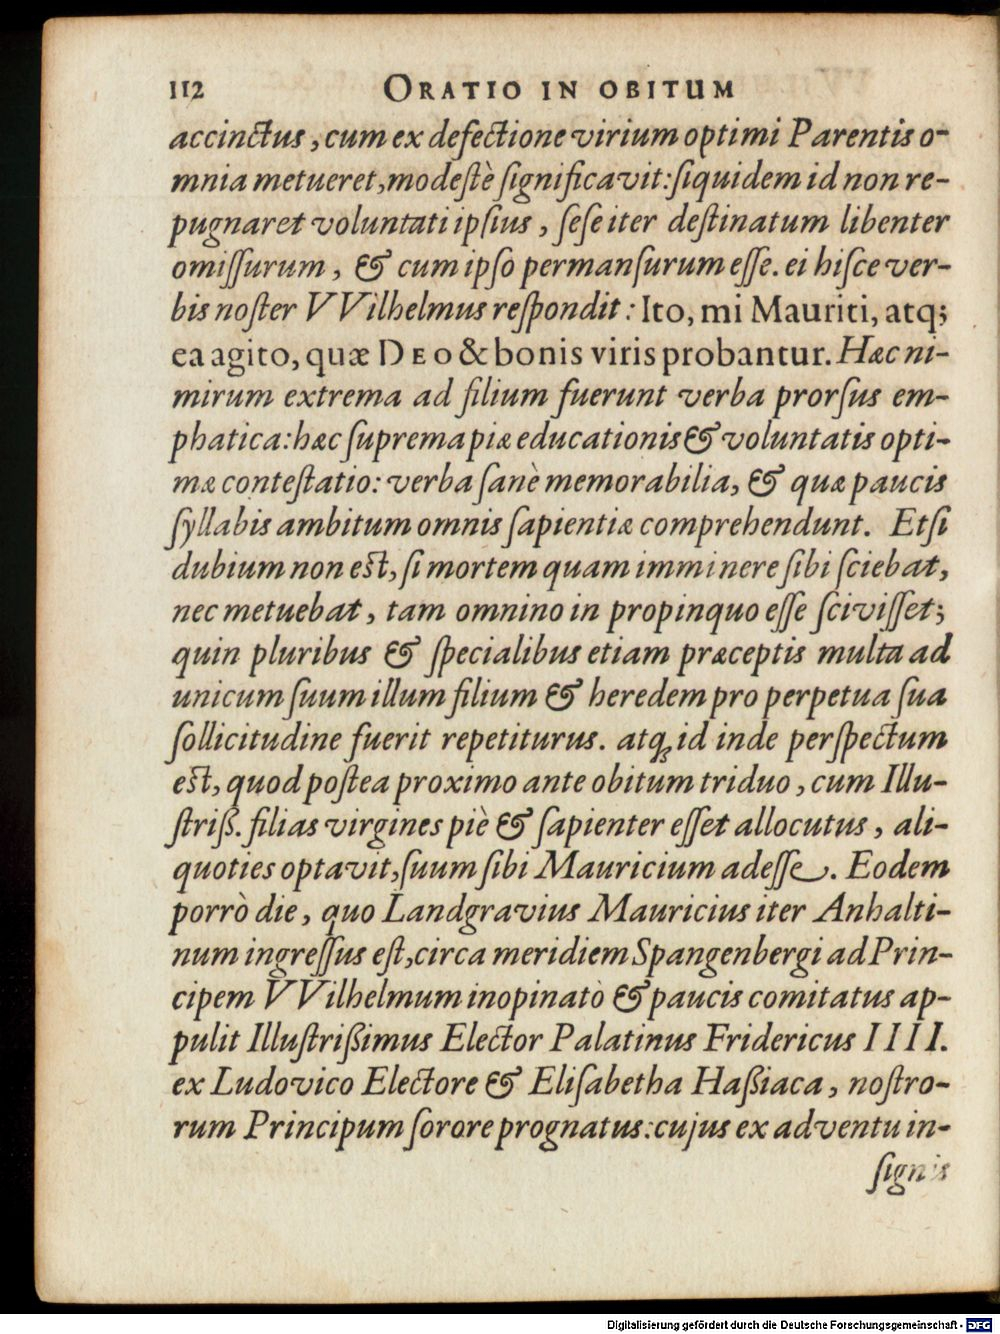 112 ORATIO IN OBITUM
accinctus, cum ex defectione virium optimi Parentis o-
mnia metueret, modestè significavit: siquidem id non re-
pugnaret voluntati ipsius, sese iter destinatum libenter
omissurum, & cum ipso permansurum esse. ei hisce ver-
bis noster VVilhelmus respondit: Ito, mi Mauriti, atq;
ea agito, quæ DEO & bonis viris probantur. Hæc ni-
mirum extrema ad filium fuerunt verba prorsus em-
phatica: hæc suprema piæ educationis & voluntatis opti-
mæ contestatio: verba sanè memorabilia, & quæ paucis
syllabis ambitum omnis sapientiæ comprehendunt. Etsi
dubium non est, si mortem quam imminere sibi sciebat,
nec metuebat, tam omnino in propinquo esse scivisset;
quin pluribus & specialibus etiam præceptis multa ad
unicum suum illum filium & heredem pro perpetua sua
sollicitudine fuerit repetiturus. atq; id inde perspectum
est, quod postea proximo ante obitum triduo, cum Illu-
striß. filias virgines piè & sapienter esset allocutus, ali-
quoties optavit, suum sibi Mauricium adesse. Eodem
porrò die, quo Landgravius Mauricius iter Anhalti-
num ingressus est, circa meridiem Spangenbergi ad Prin-
cipem VVilhelmum inopinatò & paucis comitatus ap-
pulit Illustrißimus Elector Palatinus Fridericus IIII.
ex Ludovico Electore & Elisabetha Haßiaca, nostro-
rum Principum sorore prognatus: cujus ex adventu in-
signis
Digitalisierung gefördert durch die Deutsche Forschungsgemeinschaft - DFG